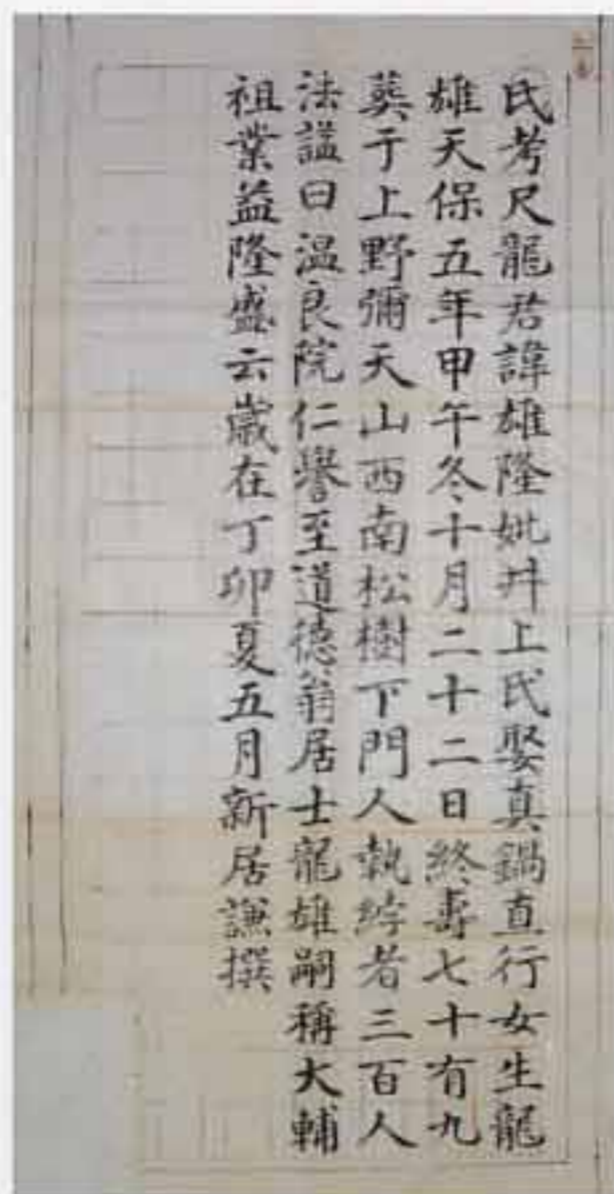 氏考尺龍君諱雄隆妣井上氏娶真鍋直行女生龍
雄天保五年甲午冬十月二十二日終壽七十有九
葬于上野彌天山西南松樹下門人執紼者三百人
法諡曰温良院仁譽至道德翁居士龍雄嗣稱大輔
祖業益隆盛云歲在丁卯夏五月新居謙撰